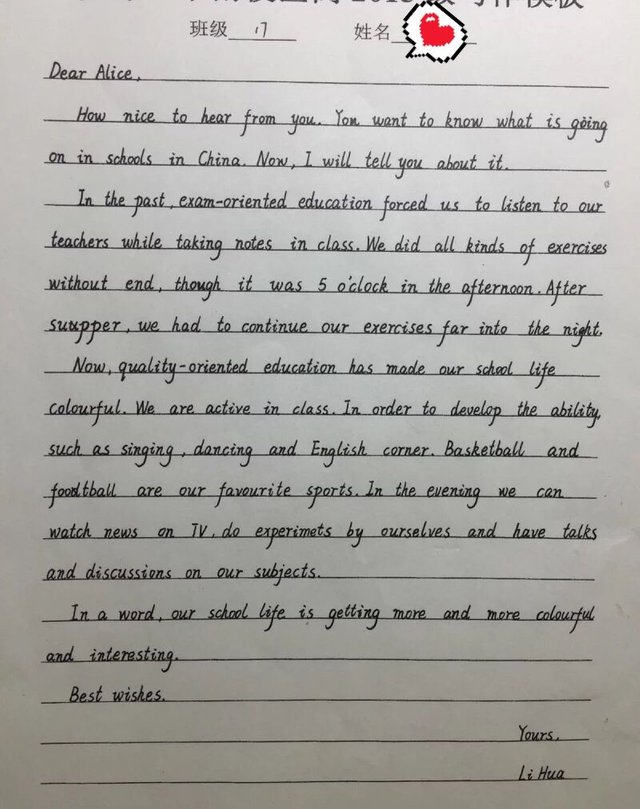 班级 17 姓名
Dear Alice,
How nice to hear from you. You want to know what is going
on in schools in China. Now, I will tell you about it.
In the past, exam-oriented education forced us to listen to our
teachers while taking notes in class. We did all kinds of exercises
without end, though it was 5 o'clock in the afternoon. After
suupper, we had to continue our exercises far into the night.
Now, quality-oriented education has made our school life
colourful. We are active in class. In order to develop the ability,
such as singing, dancing and English corner. Basketball and
football are our favourite sports. In the evening we can
watch news on TV, do experimets by ourselves and have talks
and discussions on our subjects.
In a word, our school life is getting more and more colourful
and interesting.
Best wishes.
Yours,
Li Hua